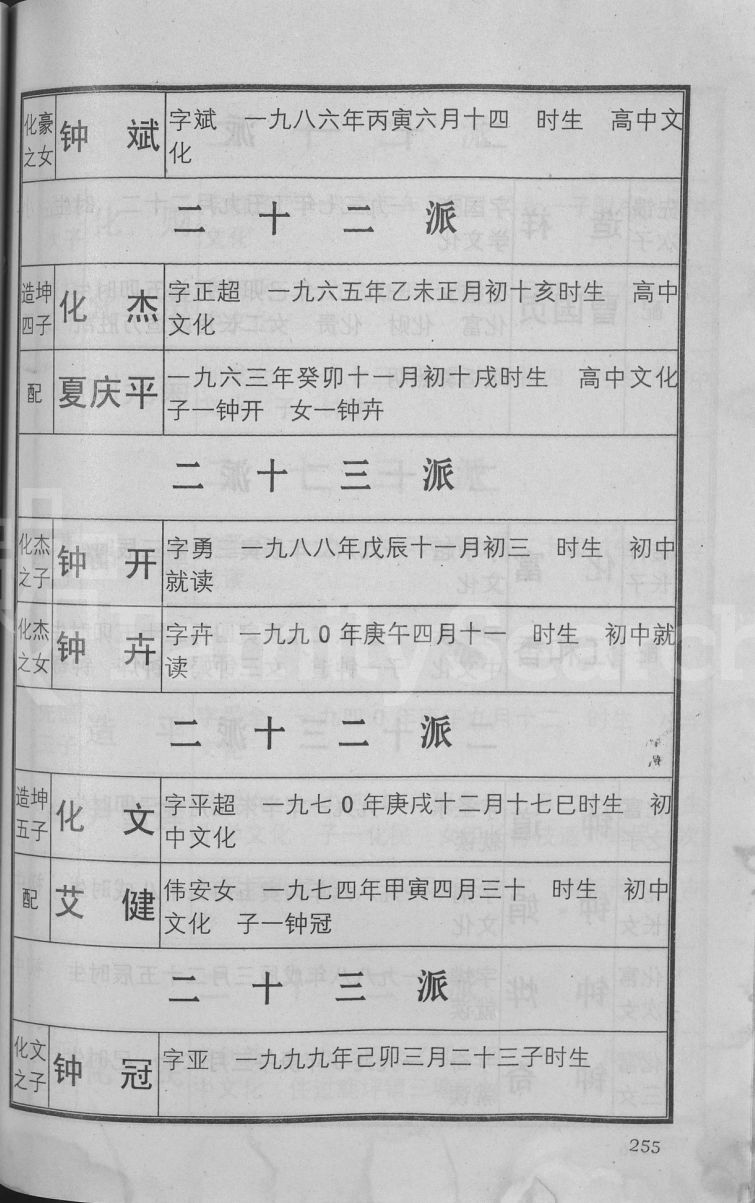 化豪之女 钟斌 字斌 一九八六年丙寅六月十四 时生 高中文
化
二十二派
造坤四子 化杰 字正超 一九六五年乙未正月初十亥时生 高中
文化
配 夏庆平 一九六三年癸卯十一月初十戌时生 高中文化
子一钟开 女一钟卉
二十三派
化杰之子 钟开 字勇 一九八八年戊辰十一月初三 时生 初中
就读
化杰之女 钟卉 字卉 一九九0年庚午四月十一 时生 初中就
读
二十二派
造坤五子 化文 字平超 一九七0年庚戌十二月十七巳时生 初
中文化
配 艾健 伟安女 一九七四年甲寅四月三十 时生 初中
文化 子一钟冠
二十三派
化文之子 钟冠 字亚 一九九九年己卯三月二十三子时生
255